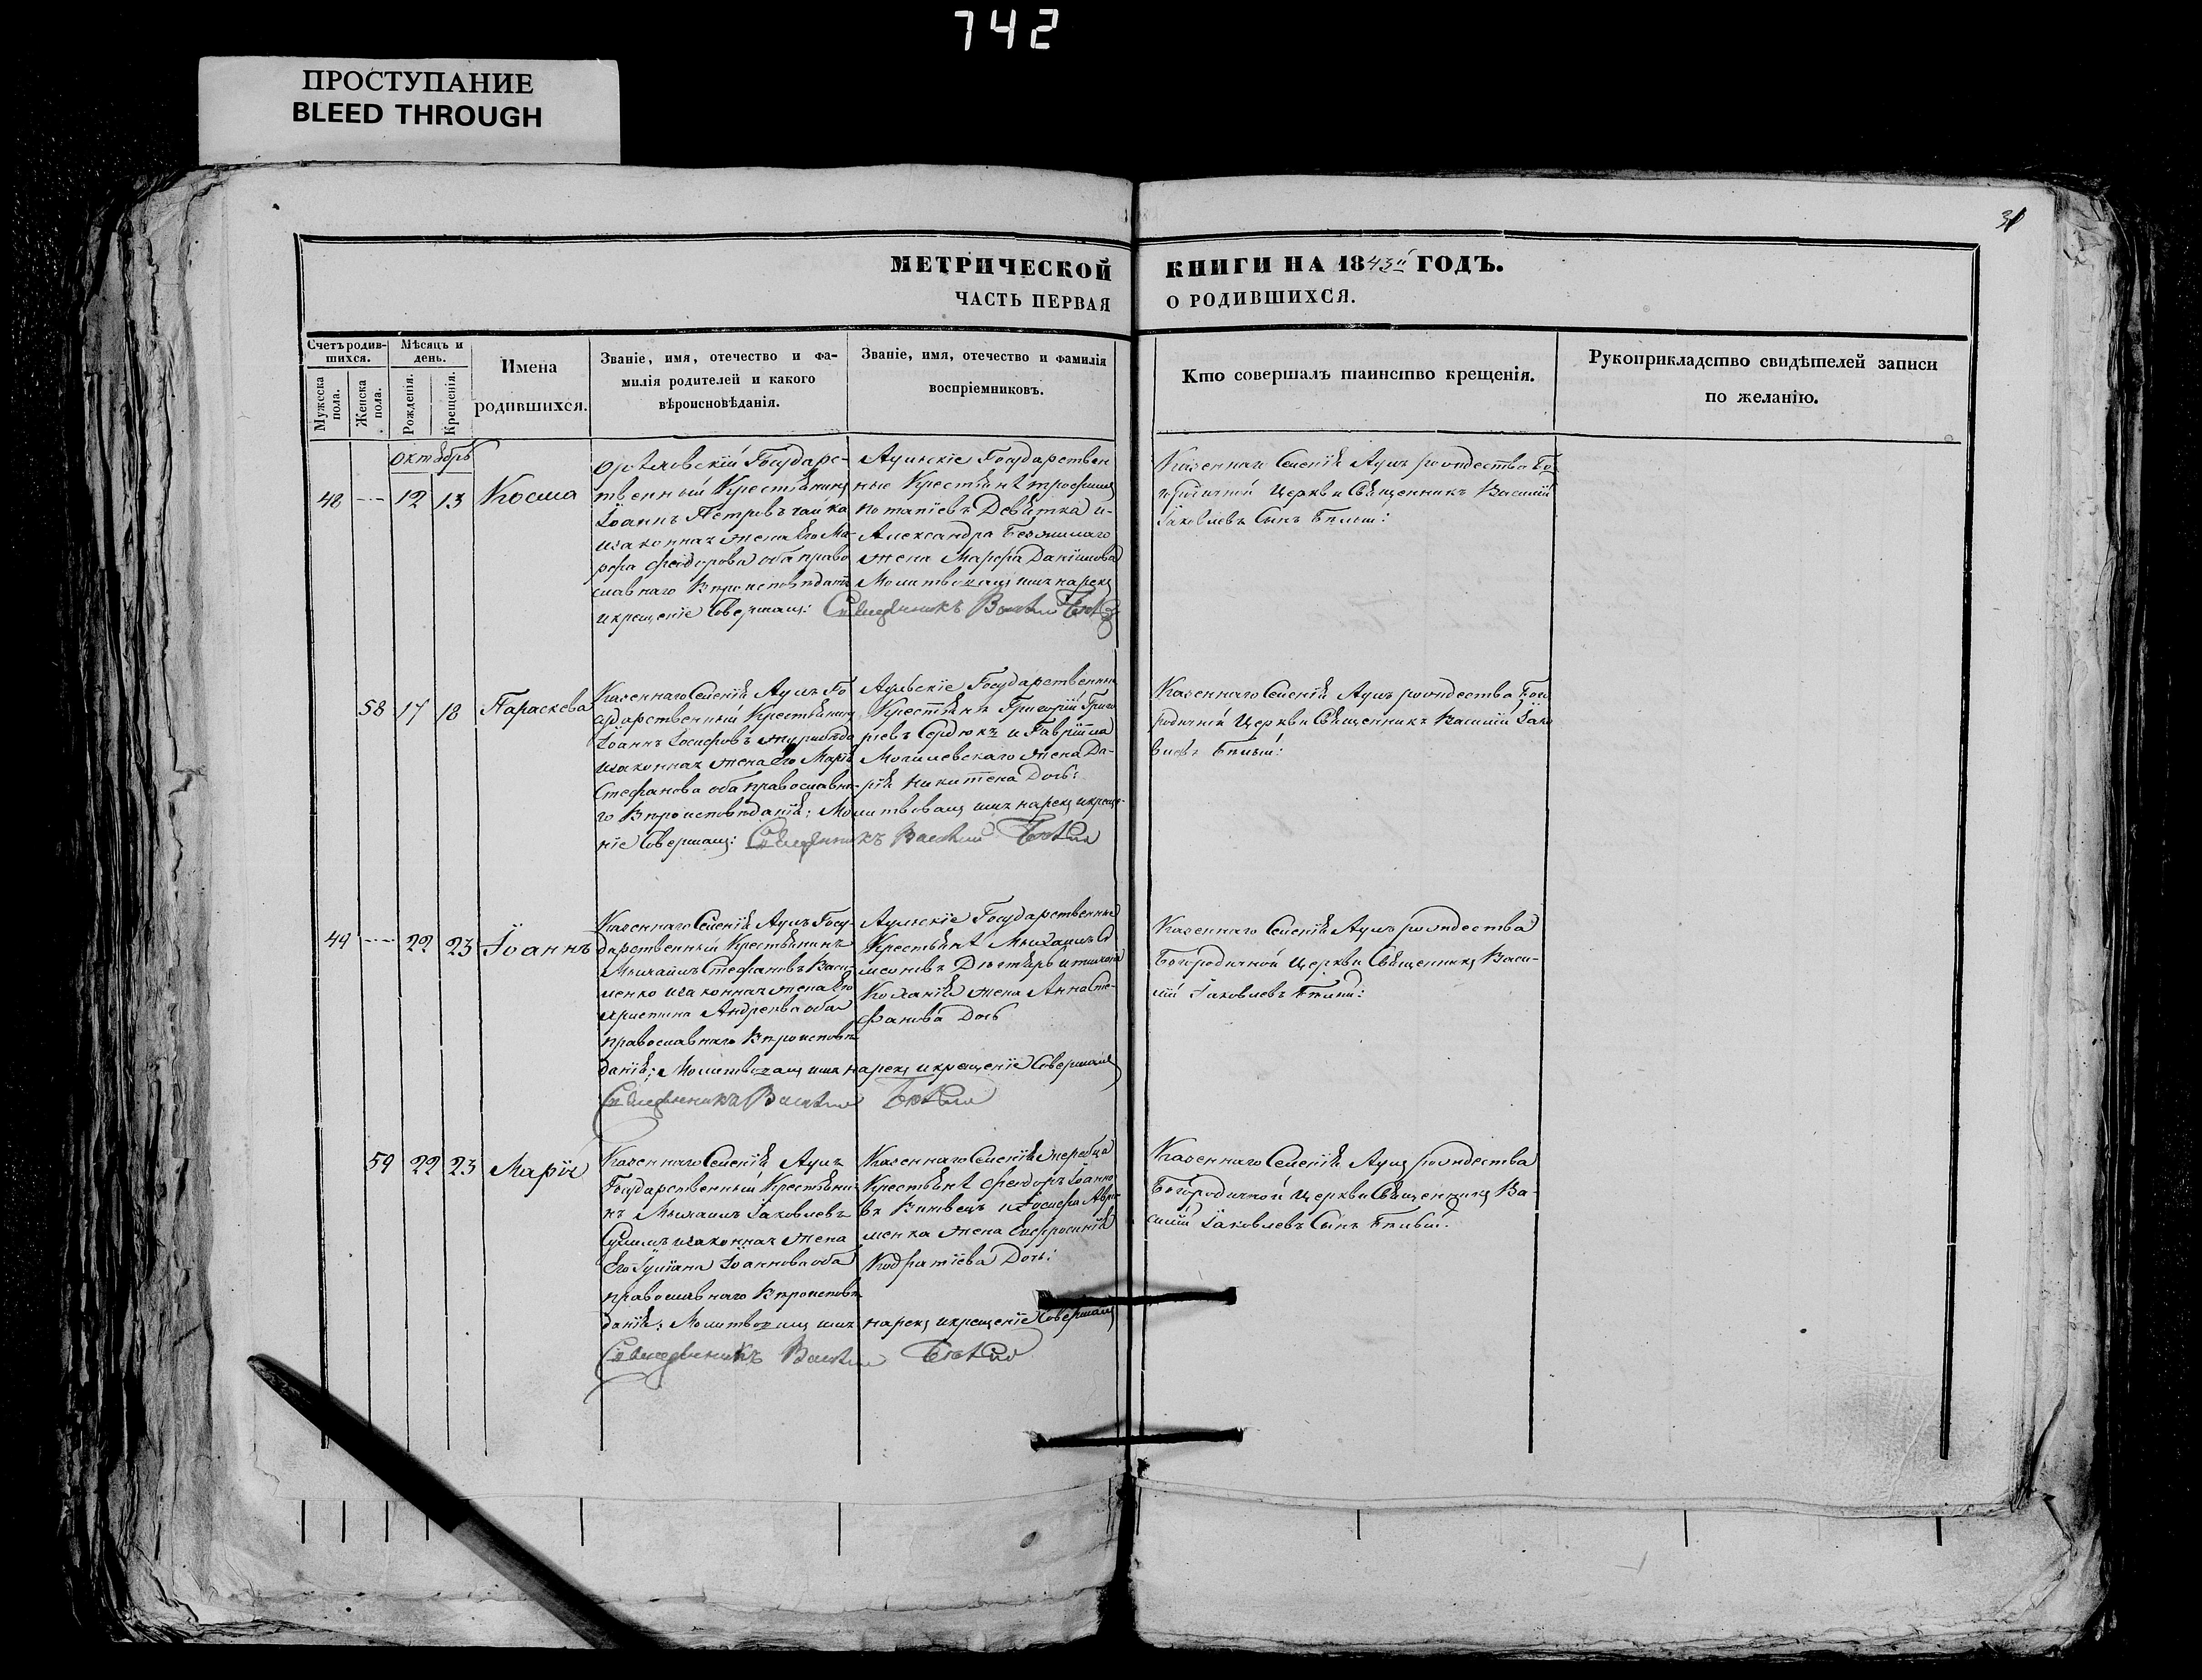 742
ПРОСТУПАНИЕ
BLEED THROUGH
31
МЕТРИЧЕСКОЙ КНИГИ НА 1843й ГОДЪ.
ЧАСТЬ ПЕРВАЯ О РОДИВШИХСЯ.
Счетъ родив-
шихся.
Мужеска
пола.
Женска
пола.
Мѣсяцъ и
день.
Рожденія.
Крещенія.
Имена
родившихся.
Званіе, имя, отечество и фа-
милія родителей и какого
вѣроисновѣданія.
Званіе, имя, отечество и фамилія
воспріемниковъ.
Кто совершалъ таинство крещенія.
Рукоприкладство свидѣтелей записи
по желанію.
октябрь
48 --- 12 13 Косма
Государс-
твенный Крестьянинъ
Іоаннъ Петровъ
изаконная жена Его Ма-
рфа Феодорова оба право
славнаго Вѣроисповѣдатъ
Аульскіе Государствен
ные Крестьяне трофимъ
потапіевъ Девятка и-
Александра
жена Марфа Даніилова
Молитвовалъ имя нарекъ
икрещеніе Совершалъ: Священникъ Василій Бѣлый
Казеннаго Селенія Аулъ рождества Бо
городичной Церкви Священникъ Василій
Іаковлевъ Сынъ Бѣлый:
58 17 18 Параскева
Казеннаго Селенія Аулъ Го
сударственный Крестьянинъ
Іоаннъ Іосифовъ
изаконная жена Его Марія
Стефанова оба православна-
го Вѣроисповѣданія: Молитвовалъ имя нарекъ икреще-
ніе Совершалъ: Священникъ Василій Бѣлый
Аульскіе Государственны
Крестьяне Григорій Григо
ріевъ Сердюкъ и Гавріила
Могилевскаго жена Да-
рія Никитена Дочь:
Казеннаго Селенія Аулъ рождества Бого
родичной Церкви Священникъ Василій Іако
влевъ Бѣлый:
49 --- 22 23 Іоаннъ
Казеннаго Селенія Аулъ Госу-
дарственный Крестьянинъ
Михаилъ Стефановъ Васи
ленко изаконная жена Его
христина Андреева оба
православнаго Вѣроисповѣ
данія; Молитвовалъ имя нарекъ икрещеніе Совершалъ
Священникъ Василій Бѣлый
Аульскіе Государственные
Крестьяне Михаилъ
жена Анна Сте-
фанова Дочь
Казеннаго Селенія Аулъ рождества
Богородичной Церкви Священникъ Васи-
лій Іаковлевъ Бѣлый:
59 22 23 Марія
Казеннаго Селенія Аулъ
Государственный Крестьяни-
нъ Михаилъ Іаковлевъ
изаконная жена
Его Іуліана Іоаннова оба
православнаго Вѣроисповѣ
данія; Молитвовалъ имя нарекъ икрещеніе Совершалъ
Священникъ Василій Бѣлый
Казеннаго Селенія
Крестьяне Феодоръ Іоанно
въ и Іосифа
менка жена Евфросинія
Кодратіева Дочь:
Казеннаго Селенія Аулъ рождества
Богородичной Церкви Священникъ Ва-
силій Іаковлевъ Сынъ Бѣлый.